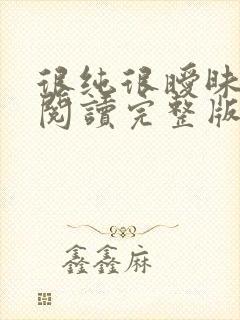 很纯很曖昧
閱讀完整版
鑫鑫麻